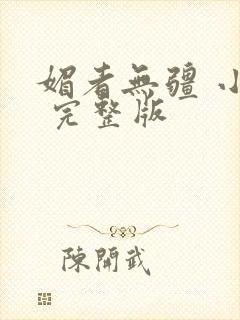 媚者無疆 小
完整版
陳開武